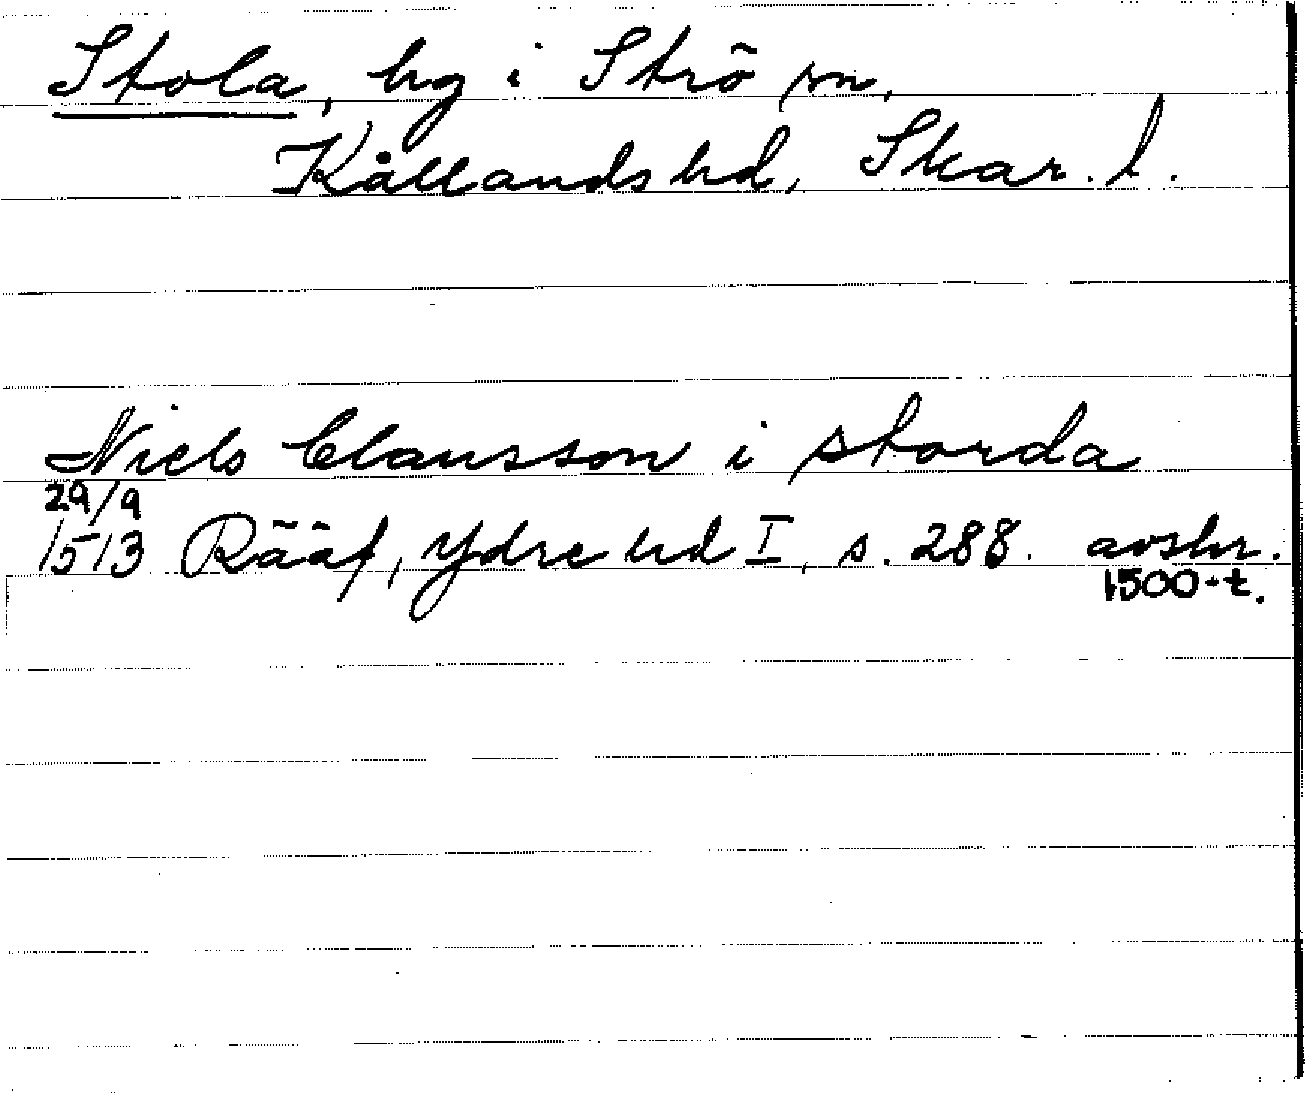 Stola, hg i Strö sn,
Kållands hd, Skar. l.
Niels Clausson i storda
29/9
1513 Rääf, Ydre hd I, s. 288. avskr.
1500-t.